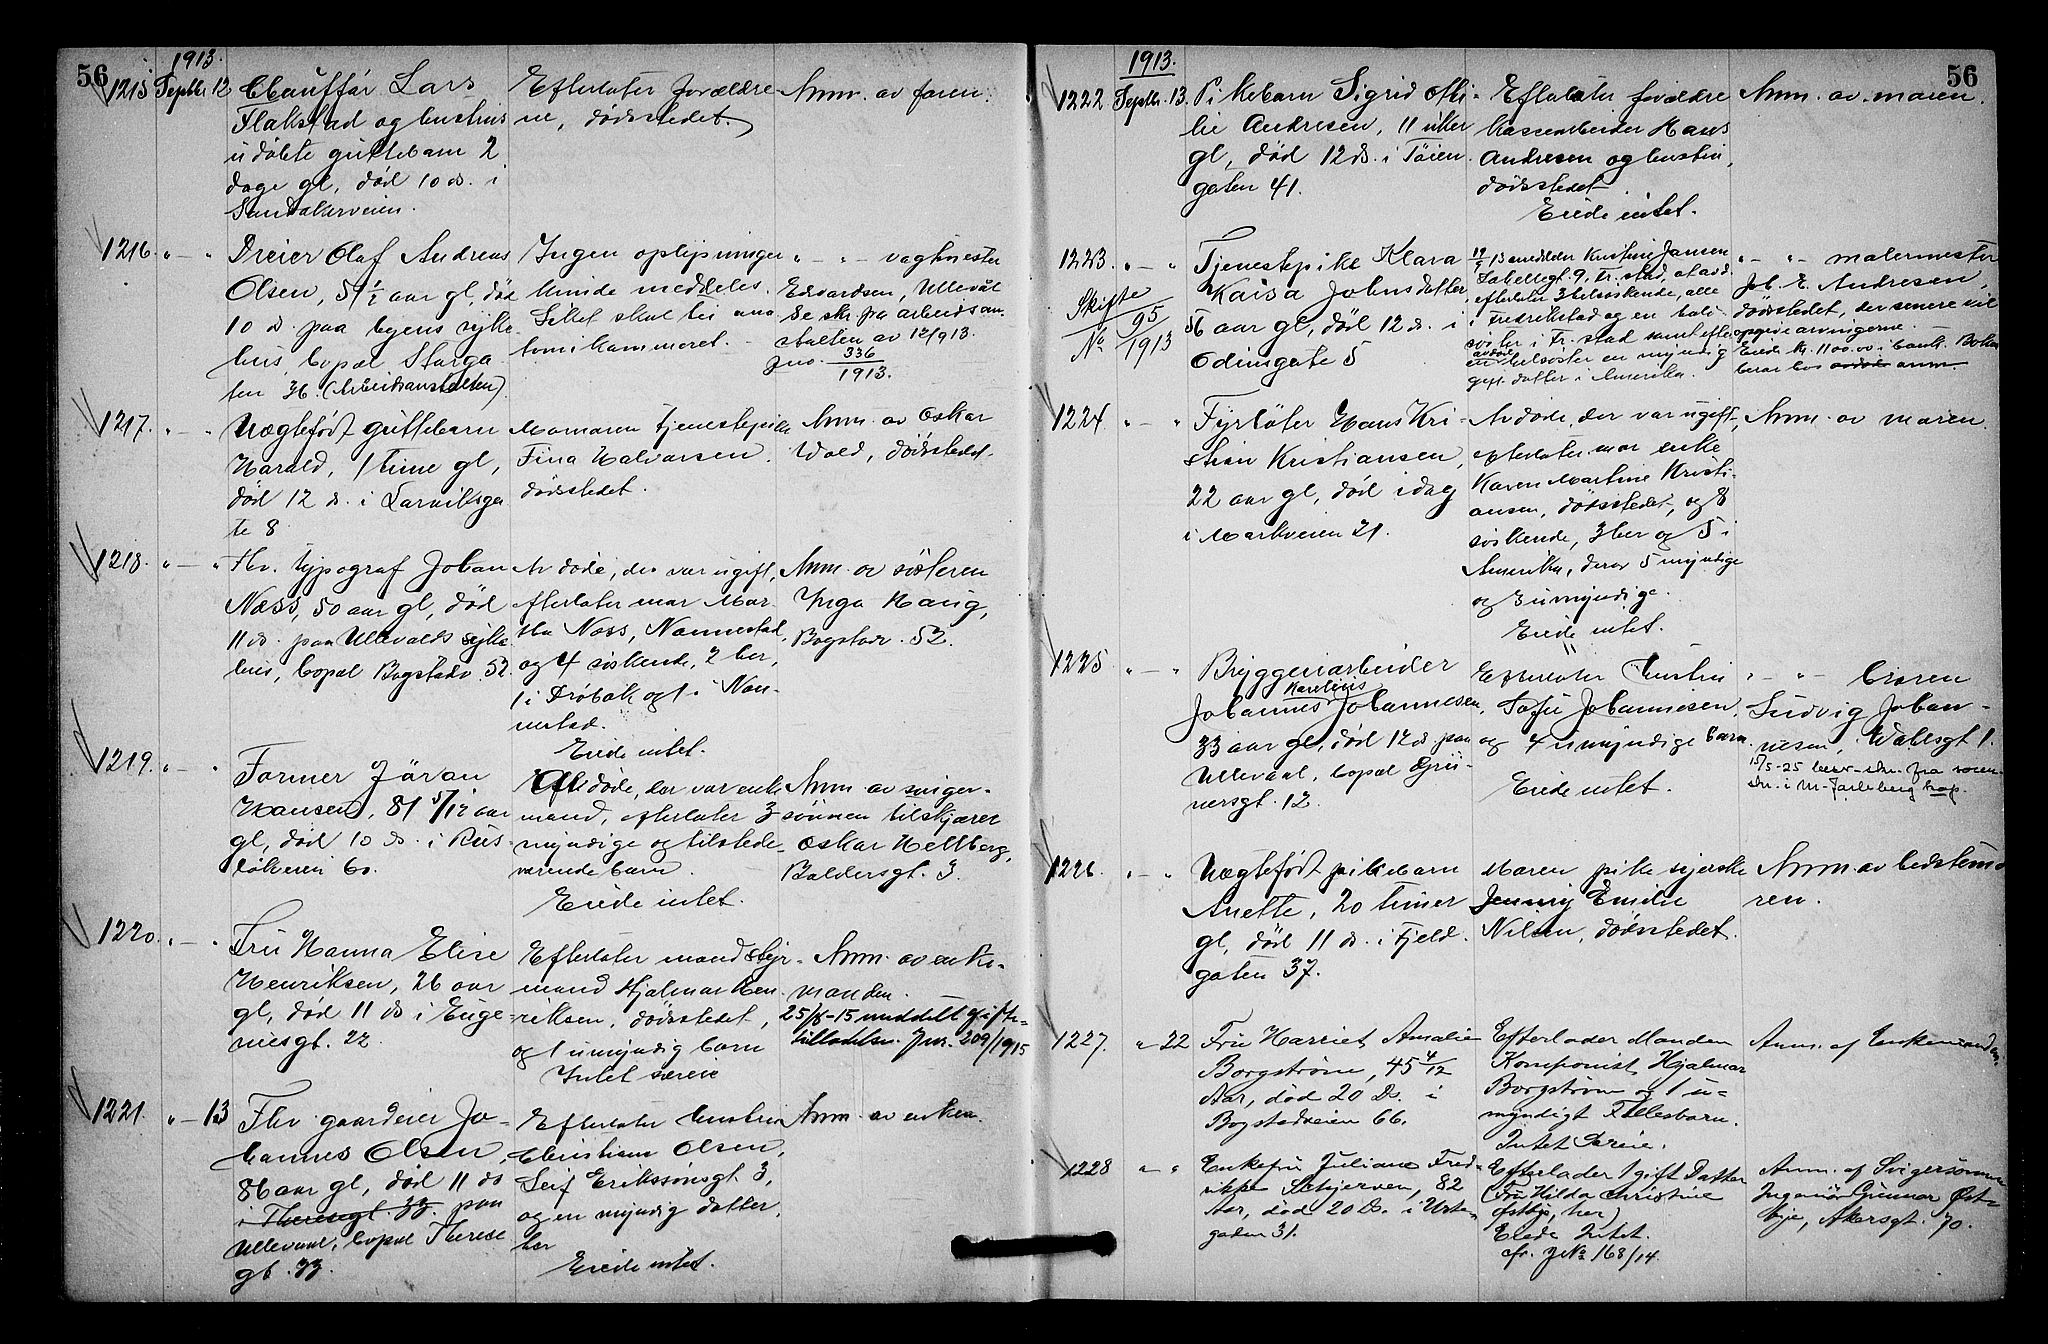 56
1913.
1215 Septbr 12 Chauffør Lars
Flakstad og hustrus
udøbte guttebarn 2
dage gl, død 10 ds. i
Sandakerveien.
Efterlater forældre
ne, dødsstedet.
Anm. av faren.
1216. " — " Dreier Olaf Andreas
Olsen, 51 1/2 aar gl, død
10 ds. paa byens syke
hus, bopæl Storga
ten 36. (Arbeidsanstalten)
Ingen oplysninger
kunde meddeles.
Liket skal til ana
tomikammeret. –
" — " — vagtmester
Edvardsen, Ullevål
Se skr. fra arbeidsan
stalten av 12/9 13.
Jno. 336/1913.
1217. " — " Uægtefødt guttebarn
Harald, 1 time gl,
død 12 ds. i Larviksga
te 8
Mormoren tjenestepike
Fina Halvorsen.
dødsstedet.
Anm. av Oskar
Wold, dødsstedet.
1218. " — " Fhv. typograf Johan
Næss, 50 aar gl, død
11 ds. paa Ullevaals syke
hus, bopæl Bogstadv. 52.
Avdøde, der var ugift,
efterlater mor Mar-
tha Næss, Nannestad,
og 4 søskende, 2 her,
1 i Drøbak og 1 i Nan-
nestad.
Eiede intet.
Anm. av søsteren
Inga Haug,
Bogstadv. 52.
1219. " — " Former Jøran
Hansen, 81 5/12 aar
gl, død 10 ds. i Rus-
løkveien 60.
Avdøde, der var enke
mand, efterlater 3
myndige og tilstede-
værende barn.
Eiede intet.
Anm. av sviger-
sønnen tilskjærer
Oskar Hellberg,
Baldersgt. 3.
1220. " — " Fru Hanna Elise
Henriksen, 26 aar
gl, død 11 ds i Euge-
niesgt. 22.
Efterlater mand styr-
mand Hjalmar Hen
riksen, dødsstedet,
og 1 umyndig barn
Intet særeie
Anm. av enke-
manden.
25/8-15 meddelt gifte-
tilladelse. Jnr. 209/1915
1221. " — 13 Fhv. gaardeier Jo-
hannes Olsen,
86 aar gl, død 11 ds
i Theresgt. 33. paa
Ullevaal, bopæl Therese
gt. 33.
Efterlater hustru
Christiane Olsen,
Leif Erikssønsgt 3,
og en myndig datter,
her
Eiede intet.
Anm. av enken.
56
1913.
1222 Septbr. 13. Pikebarn Sigrid Othi-
lie Andresen, 11 uker
gl, død 12 ds. i Tøien
gaten 41.
Efterlater forældre
kassearbeider Hans
Andresen og hustru,
dødsstedet.
Eiede intet.
Anm. av moren.
1223. " — " Tjenestepike Klara
Kaisa Johnsdatter
56 aar gl, død 12 ds. i
Odinsgate 5
Skifte
No 95/1913
17/9 13 meddeler Kristine Jansen
gt. 9, Fr.stad, at avd.
efterlater 3 helsøskende, alle
i Fredrikstad og en halv
søster i Fr.stad samt efter
avdød
en helsøster en myndig
gift datter i Amerika.
" — " — malermester
Joh. E. Andresen,
dødsstedet, der senere vil
opgive arvingerne.
Eiede kr. 1100.00 i bank. Boken
beror hos avdøde anm.
1224 " — " Fyrbøter Hans Kri-
stian Kristiansen,
22 aar gl, død idag
i Markveien 21.
Avdøde, der var ugift,
efterlater mor enke
Karen Martine Kristi-
ansen, dødsstedet, og 8
søskende, 3 her og 5 i
Amerika, derav 5 myndige
og 3 umyndige.
Eiede intet.
Anm. av moren.
1225 " — " Bryggeriarbeider
Karelius
Johannes Johannesen,
33 aar gl, død 12 ds. paa
Ullevaal, bopæl Grü-
nersgt. 12.
Efterlater hustru
Sofie Johannesen,
og 4 umyndige barn.
Eiede intet.
" — " — broren
Ludvig Johan-
nesen, Wahlsgt 1.
15/5-25 besv. skr. fra soren-
skr. i M-Jarlsberg
1226. " — " Uægtefødt pikebarn
Anette, 20 timer
gl, død 11 ds. i Fjeld-
gaten 37.
Moren pike syerske
Jenny Emilie
Nilsen, dødsstedet.
Anm. av bedstemo
ren.
1227. " 22 Fru Harriet Amalie
Borgstrøm, 45 4/12
Aar, død 20 Ds. i
Bogstadveien 66.
Efterlader Manden
Komponist Hjalmar
Borgstrøm og 1 u-
myndigt Fællesbarn.
Intet Særeie.
Anm. af Enkemanden.
1228 " — " Enkefru Juliane Fred-
rikke Schjerven, 82
Aar, død 20 Ds. i Urte-
gaden 31.
Efterlader 1 gift Datter
(Fru Hilda Christine
Østbye, her)
Eiede Intet.
cfr. J No 168/14.
Anm. af Svigersønnen
Ingeniør Gunnar Øst-
bye, Akersgt. 70.